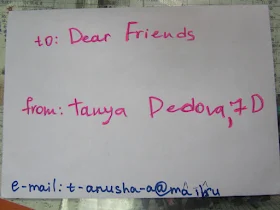 to: Dear Friends
from: Tanya Dedova, 7D
e-mail: t-anusha-a@mail.ru